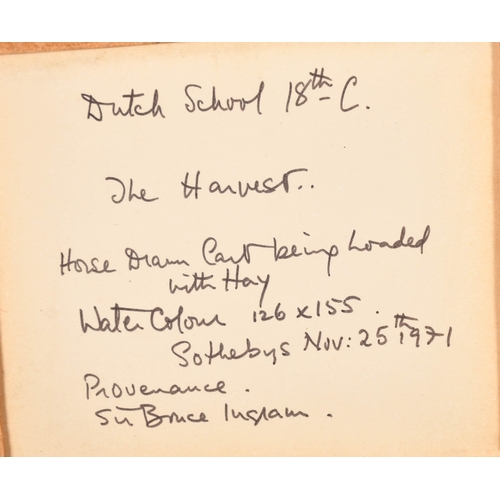 Dutch School 18th C.
The Harvest..
Horse Drawn Cart being Loaded
with Hay
Water Colour 126 x 155.
Sothebys Nov: 25th 1971
Provenance.
Sir Bruce Ingram.